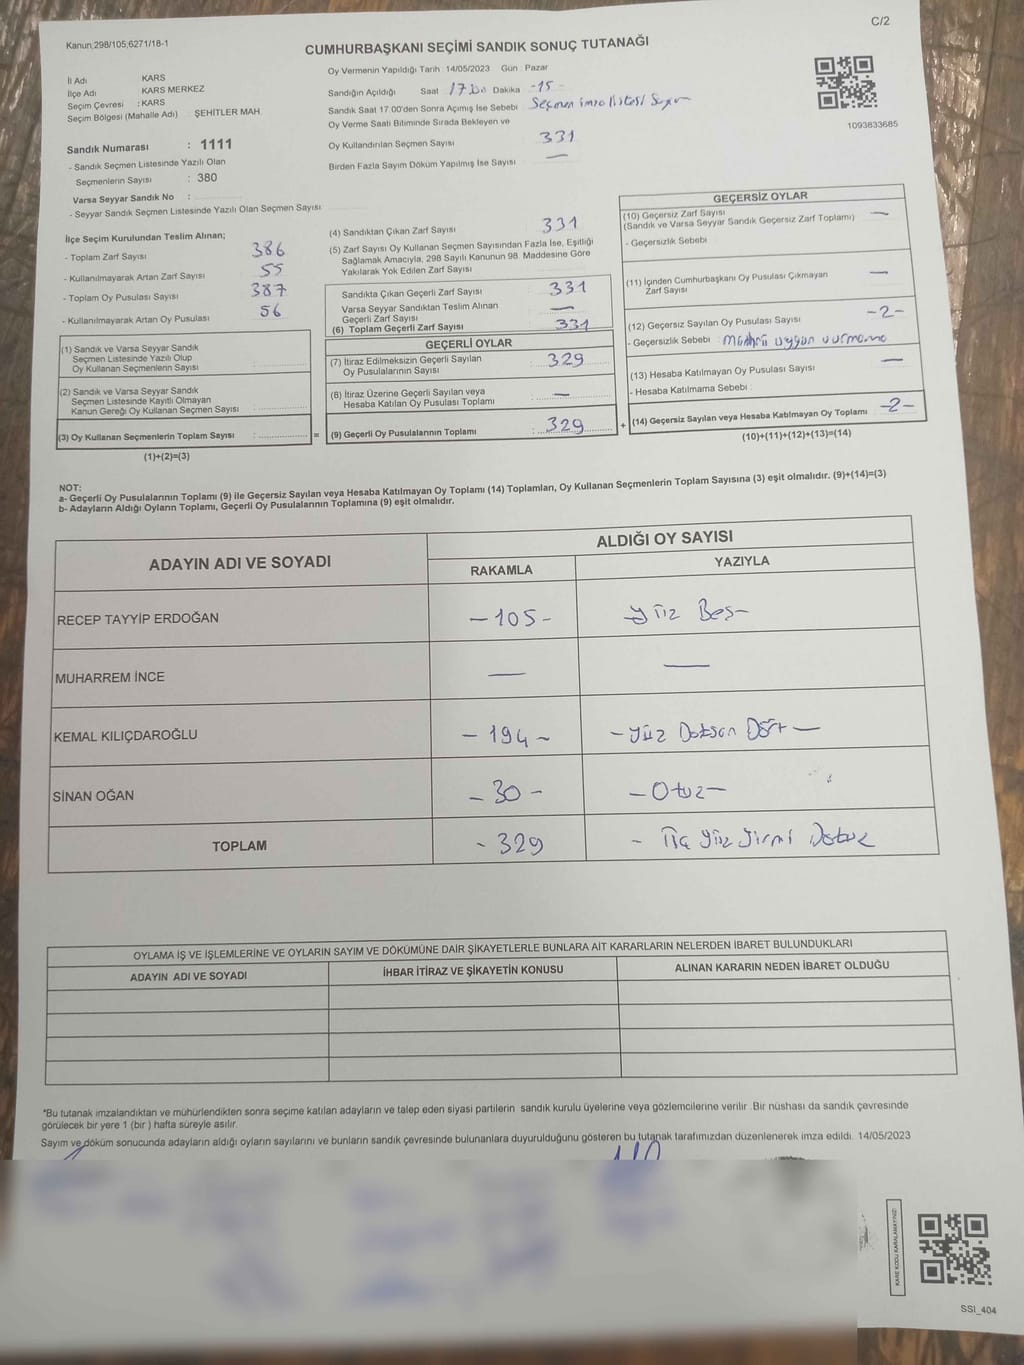 C/2
Kanun,298/105,6271/18-1
CUMHURBAŞKANI SEÇİMİ SANDIK SONUÇ TUTANAĞI
İl Adı KARS
İlçe Adı KARS MERKEZ
Seçim Çevresi : KARS
Seçim Bölgesi (Mahalle Adı) : ŞEHİTLER MAH.
Sandık Numarası : 1111
- Sandık Seçmen Listesinde Yazılı Olan
Seçmenlerin Sayısı : 380
Varsa Seyyar Sandık No :
- Seyyar Sandık Seçmen Listesinde Yazılı Olan Seçmen Sayısı
Oy Vermenin Yapıldığı Tarih : 14/05/2023 Gün : Pazar
Sandığın Açıldığı Saat 17 Dakika -15-
Sandık Saat 17.00'den Sonra Açımış İse Sebebi : Seçmen imza listesi
Oy Verme Saati Bitiminde Sırada Bekleyen ve
Oy Kullandırılan Seçmen Sayısı 331
Birden Fazla Sayım Döküm Yapılmış İse Sayısı —
1093833685
İlçe Seçim Kurulundan Teslim Alınan;
- Toplam Zarf Sayısı 386
- Kullanılmayarak Artan Zarf Sayısı 55
- Toplam Oy Pusulası Sayısı 387
- Kullanılmayarak Artan Oy Pusulası 56
(1) Sandık ve Varsa Seyyar Sandık
Seçmen Listesinde Yazılı Olup
Oy Kullanan Seçmenlerin Sayısı :
(2) Sandık ve Varsa Seyyar Sandık
Seçmen Listesinde Kayıtlı Olmayan
Kanun Gereği Oy Kullanan Seçmen Sayısı :
(3) Oy Kullanan Seçmenlerin Toplam Sayısı : =
(1)+(2)=(3)
(4) Sandıktan Çıkan Zarf Sayısı 331
(5) Zarf Sayısı Oy Kullanan Seçmen Sayısından Fazla İse, Eşitliği
Sağlamak Amacıyla, 298 Sayılı Kanunun 98. Maddesine Göre
Yakılarak Yok Edilen Zarf Sayısı
Sandıkta Çıkan Geçerli Zarf Sayısı 331
Varsa Seyyar Sandıktan Teslim Alınan
Geçerli Zarf Sayısı —
(6) Toplam Geçerli Zarf Sayısı 331
GEÇERLİ OYLAR
(7) İtiraz Edilmeksizin Geçerli Sayılan
Oy Pusulalarının Sayısı : 329
(8) İtiraz Üzerine Geçerli Sayılan veya
Hesaba Katılan Oy Pusulası Toplamı : —
(9) Geçerli Oy Pusulalarının Toplamı : 329 +
GEÇERSİZ OYLAR
(10) Geçersiz Zarf Sayısı —
(Sandık ve Varsa Seyyar Sandık Geçersiz Zarf Toplamı)
- Geçersizlik Sebebi
(11) İçinden Cumhurbaşkanı Oy Pusulası Çıkmayan
Zarf Sayısı —
(12) Geçersiz Sayılan Oy Pusulası Sayısı -2-
- Geçersizlik Sebebi : Mührü uygun vurmama
(13) Hesaba Katılmayan Oy Pusulası Sayısı —
- Hesaba Katılmama Sebebi :
(14) Geçersiz Sayılan veya Hesaba Katılmayan Oy Toplamı -2-
(10)+(11)+(12)+(13)=(14)
NOT:
a- Geçerli Oy Pusulalarının Toplamı (9) ile Geçersiz Sayılan veya Hesaba Katılmayan Oy Toplamı (14) Toplamları, Oy Kullanan Seçmenlerin Toplam Sayısına (3) eşit olmalıdır. (9)+(14)=(3)
b- Adayların Aldığı Oyların Toplamı, Geçerli Oy Pusulalarının Toplamına (9) eşit olmalıdır.
ADAYIN ADI VE SOYADI ALDIĞI OY SAYISI
RAKAMLA YAZIYLA
RECEP TAYYİP ERDOĞAN -105- Yüz Beş-
MUHARREM İNCE — —
KEMAL KILIÇDAROĞLU -194- -Yüz Doksan Dört-
SİNAN OĞAN -30- -Otuz-
TOPLAM -329 - Üç Yüz Yirmi Dokuz
OYLAMA İŞ VE İŞLEMLERİNE VE OYLARIN SAYIM VE DÖKÜMÜNE DAİR ŞİKAYETLERLE BUNLARA AİT KARARLARIN NELERDEN İBARET BULUNDUKLARI
ADAYIN ADI VE SOYADI İHBAR İTİRAZ VE ŞİKAYETİN KONUSU ALINAN KARARIN NEDEN İBARET OLDUĞU
*Bu tutanak imzalandıktan ve mühürlendikten sonra seçime katılan adayların ve talep eden siyasi partilerin sandık kurulu üyelerine veya gözlemcilerine verilir. Bir nüshası da sandık çevresinde
görülecek bir yere 1 (bir ) hafta süreyle asılır.
Sayım ve döküm sonucunda adayların aldığı oyların sayılarını ve bunların sandık çevresinde bulunanlara duyurulduğunu gösteren bu tutanak tarafımızdan düzenlenerek imza edildi. 14/05/2023
KARE KODU KARALAMAYINIZ!
SSI_404